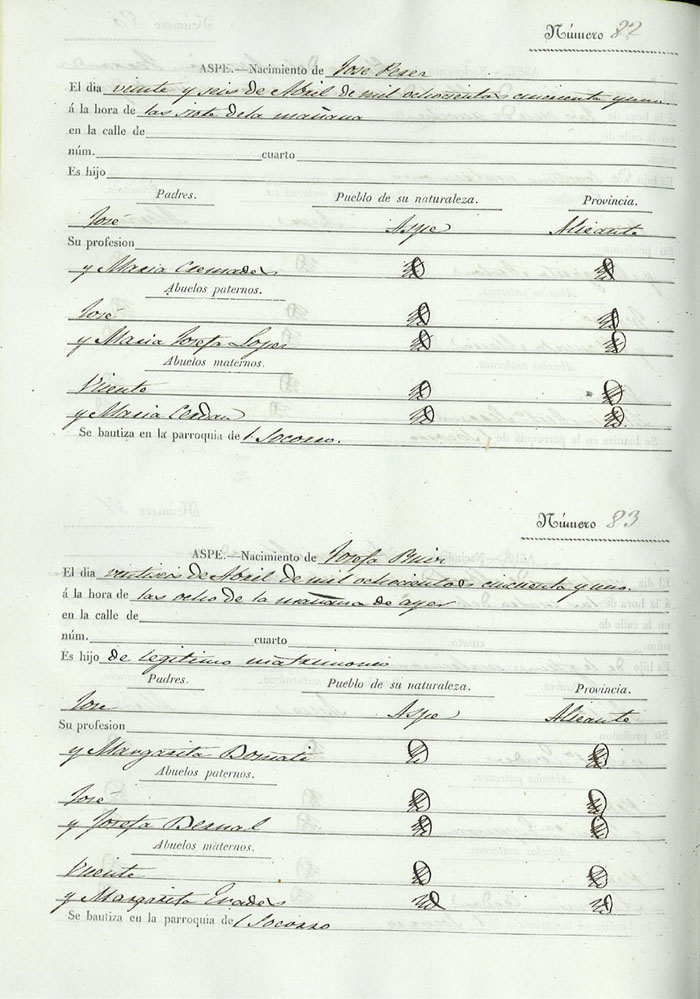 Número 82
ASPE.—Nacimiento de Jose Perer
El dia veinte y seis de Abril de mil ochocientos cincuenta y uno
á la hora de las siete de la mañana
en la calle de
núm. cuarto
Es hijo
Padres. Pueblo de su naturaleza. Provincia.
José Aspe Alicante
Su profesion
y Maria Cremades id id
Abuelos paternos.
José id id
y Maria Josefa Lopez id id
Abuelos maternos.
Vicente id id
y Maria Cerdan id id
Se bautiza en la parroquia del Socorro.
Número 83
ASPE.—Nacimiento de Josefa
El dia de Abril de mil ochocientos cincuenta y uno.
á la hora de las ocho de la mañana de ayer
en la calle de
núm. cuarto
Es hijo de legitimo matrimonio
Padres. Pueblo de su naturaleza. Provincia.
Jose Aspe Alicante
Su profesion
y Margarita id id
Abuelos paternos.
José id id
y Josefa Bernal id id
Abuelos maternos.
Vicente id id
y Margarita id id
Se bautiza en la parroquia del Socorro